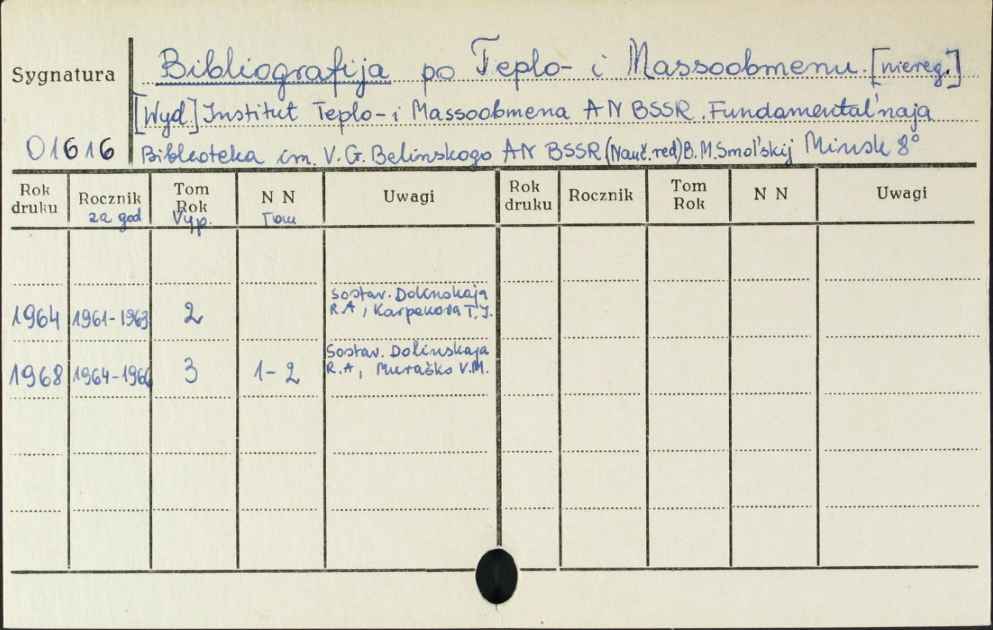 Sygnatura
Bibliografija po Teplo- i Massoobmenu. [niereg.]
[Wyd.] Institut Teplo-i Massoobmena AN BSSR. Fundamental'naja
01616 Biblioteka im. V.G. Belinskogo AN BSSR (Nauč. red) B.M. Smol'skij Minsk 8°
Rok druku Rocznik Tom Rok N N Uwagi Rok druku Rocznik Tom Rok N N Uwagi
za god Vyp. Tom
Sostav. Dolinskaja
1964 1961-1963 2 R.A, Karpekova T.I.
Sostav. Dolinskaja
1968 1964-1966 3 1-2 R.A, Muraško V.M.